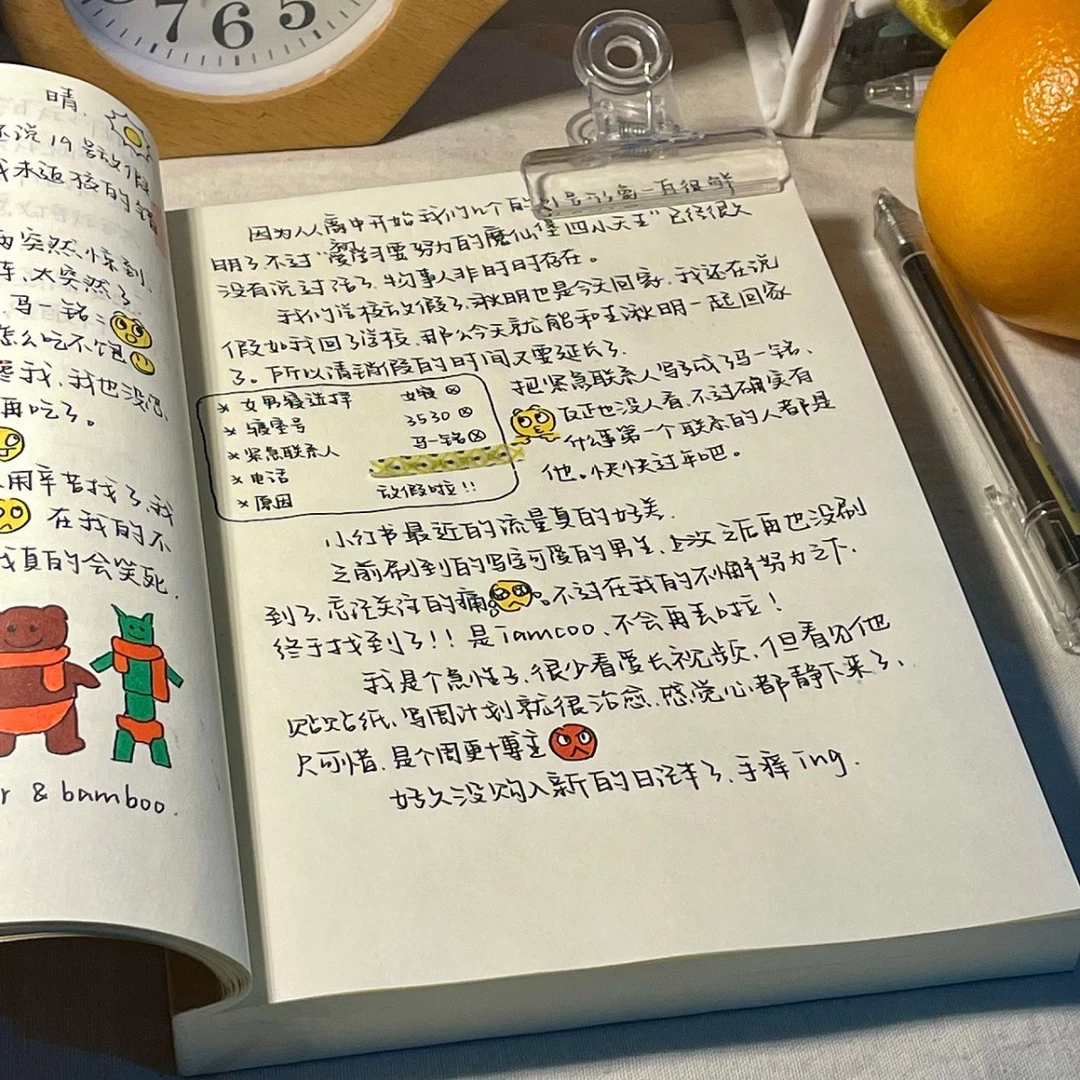 7 6 5
晴.
还说19号放假
我未返孩的
突然惊到
车、太突然了
马一铭:
怎么吃不饱
我、我也没
再吃了。
用辛苦找了、我
在我的不
我真的会笑死.
r & bamboo.
因为从高中开始我们几个的 一直很鲜
明了不过“爱学习要努力的魔仙堡四小天王”已经很久
没有说过话了、物事人非时时存在。
我们学校放假了、湫明也是今天回家、我还在说
假如我回了学校、那么今天就能和王湫明一起回家
了。所以清销假的时间又要延长了.
* 女男寝选择 女寝
* 寝室号 3530
* 紧急联系人 马一铭
* 电话
* 原因 放假啦!!
把紧急联系人写成了马一铭、
反正也没人看、不过确实有
什么事第一个联系的人都是
他。快快过年吧。
小红书最近的流量真的好差.
之前刷到的写字可爱的男生、上次之后再也没刷
到了、忘没关注的痛。不过在我的不懈努力之下.
终于找到了!! 是iamcoo、不会再丢啦!
我是个急性子、很少看爱长视频、但看见他
贴贴纸、写周计划就很治愈、感觉心都静下来了、
只可惜、是个周更博主
好久没购入新的日记本了、手痒ing.